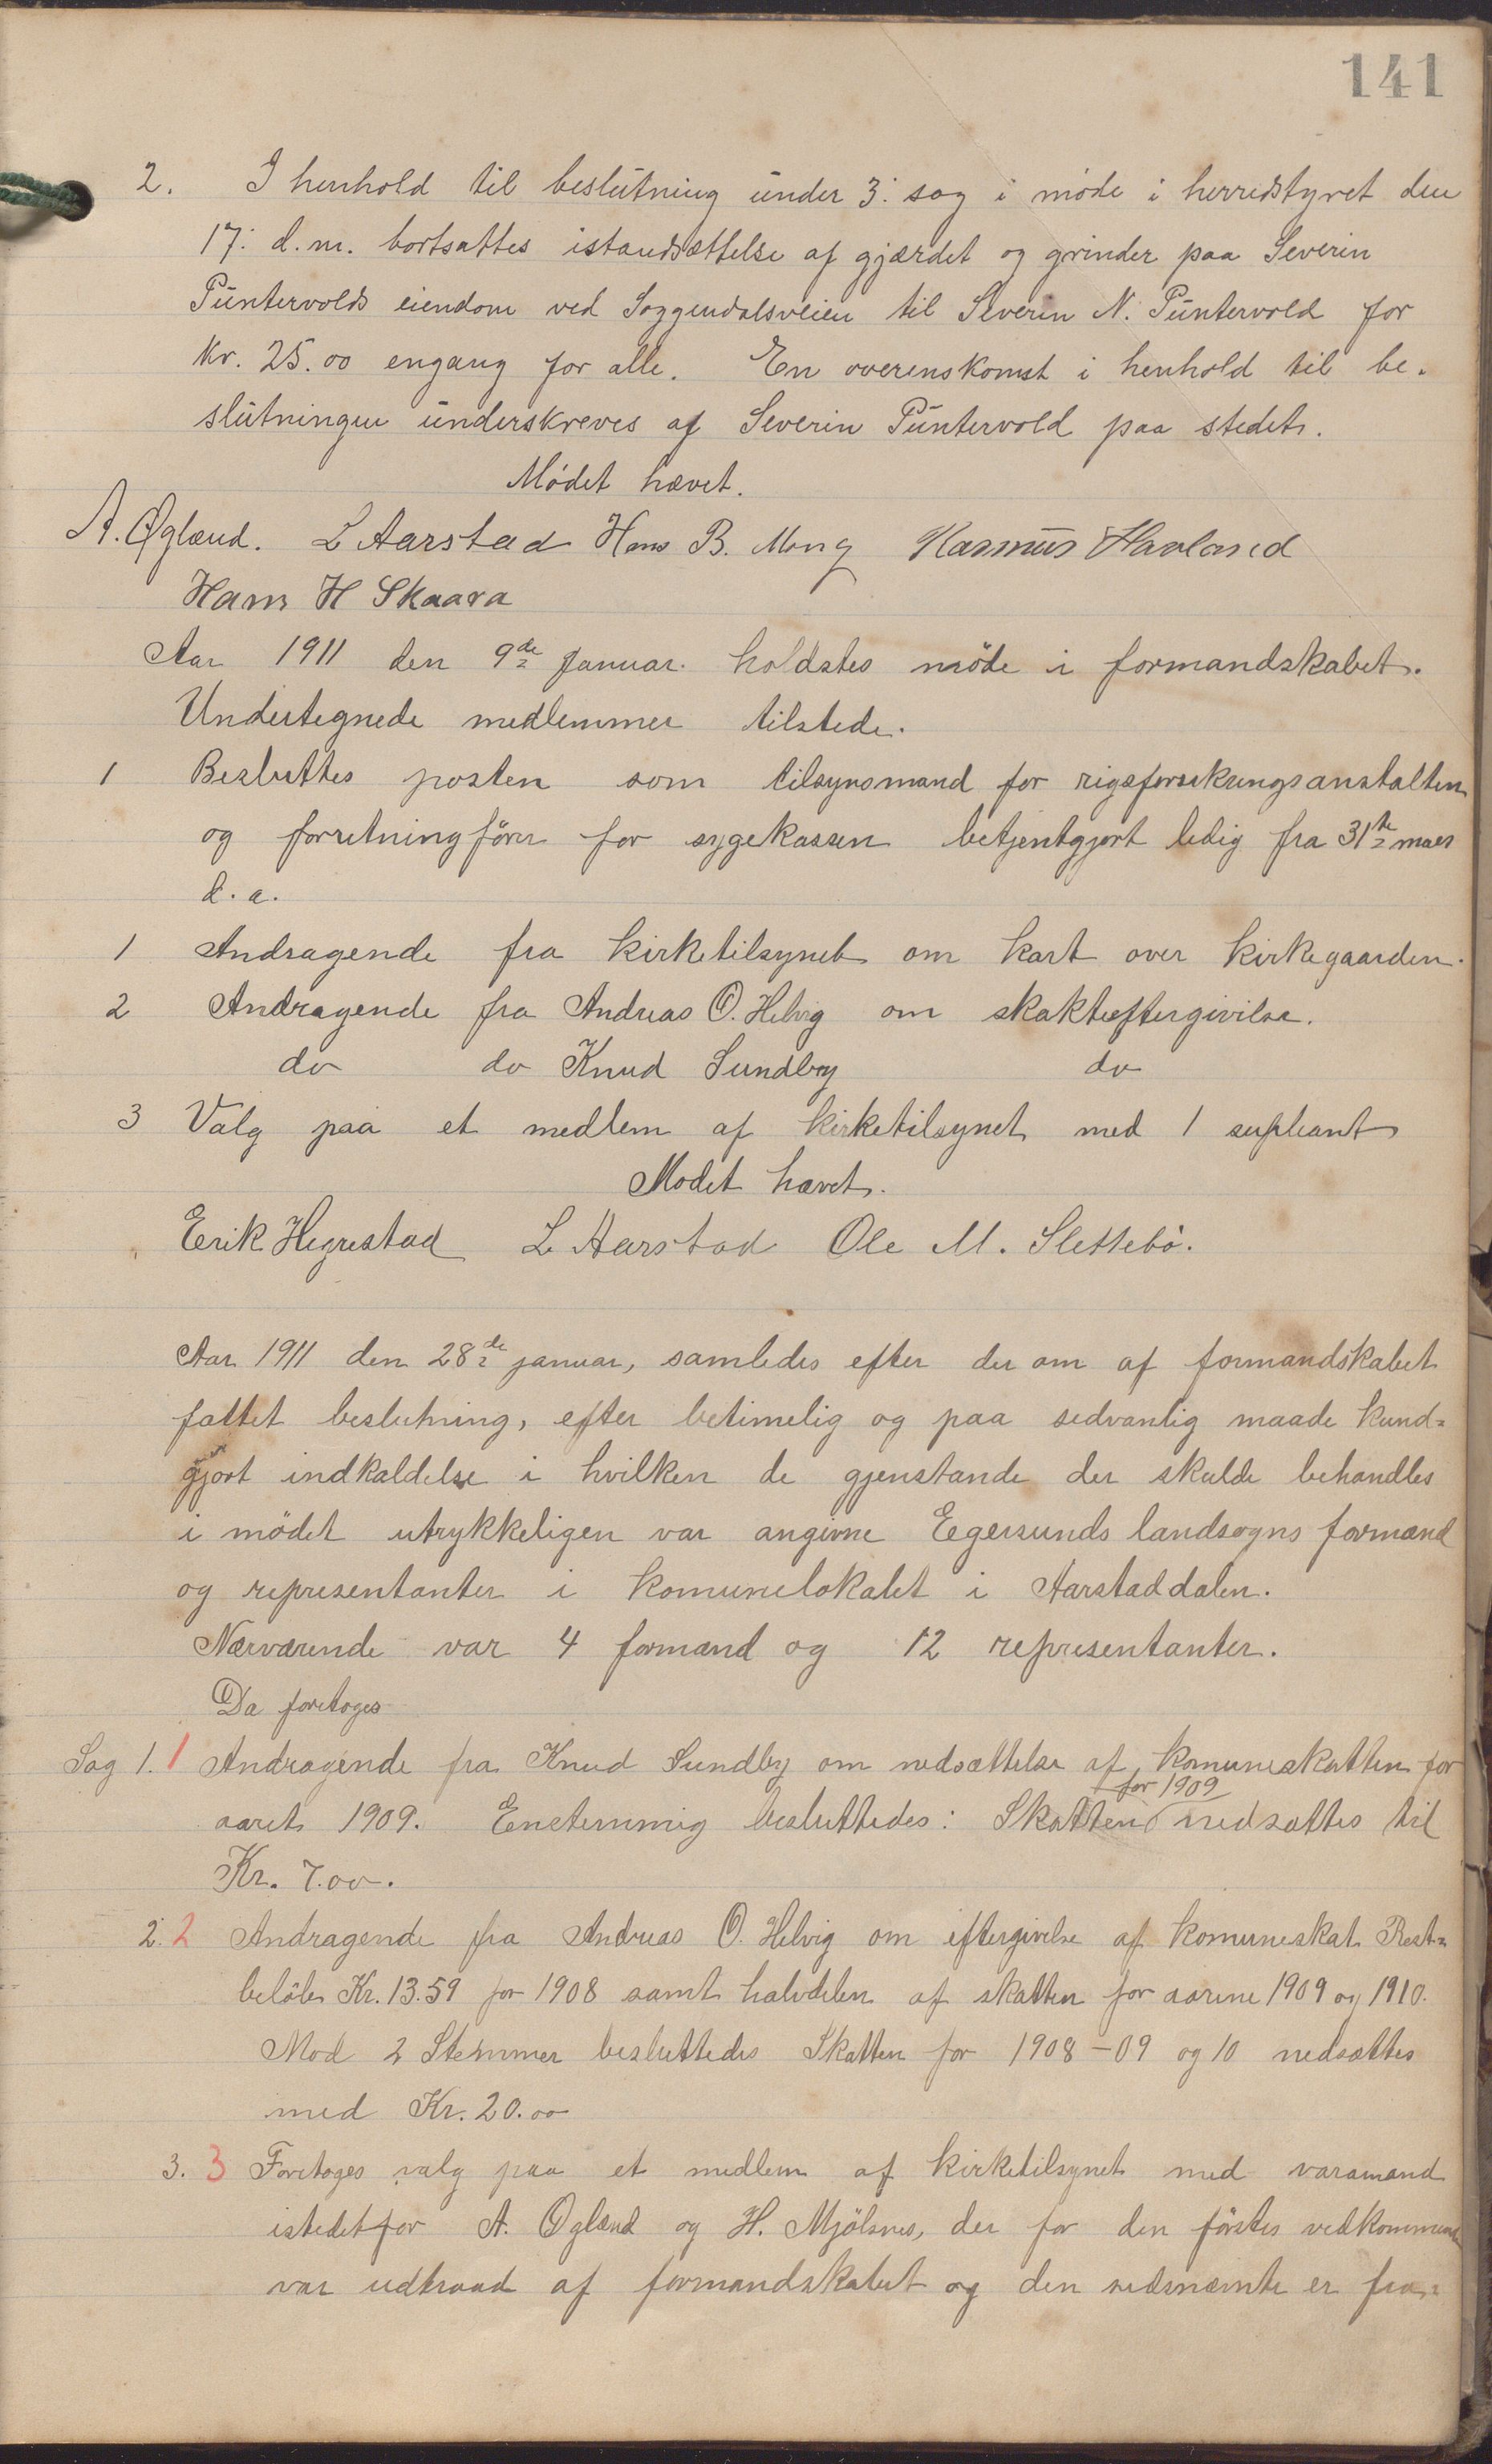 141
2. I henhold til beslutning under 3: sag i møde i herredstyret den
17: d.m. bortsattes istandsættelse af gjærdet og grinder paa Severin
Puntervolds eiendom ved Soggendalsveien til Severin N. Puntervold for
kr. 25.00 engang for alle. En overenskomst i henhold til be-
slutningen underskreves af Severin Puntervold paa stedet.
Mødet hævet.
A. Øgland. L Aarstad Hans B. Mong Rasmus Havland
Hans H Skaara
Aar 1911 den 9de Januar. holdtes møde i formandskabet.
Undertegnede medlemmer tilstede.
1 Besluttes posten som tilsynsmand for rigsforsekringsanstalten
og forretningfører for sygekassen betjentgjort ledig fra 31te mars
d.a.
1 Andragende fra kirketilsynet om kart over kirkegaarden.
2 Andragende fra Andreas O. Helvig om skakteftergivelse.
do do Knud Sundby do
3 Valg paa et medlem af kirketilsynet med 1 supleant
Modet hævet.
Erik Hegrestad L Aarstad Ole M. Slettebö.
Aar 1911 den 28de januar, samledes efter der om af formandskabet
fattet beslutning, efter betimelig og paa sedvanlig maade kund-
gjort indkaldelse i hvilken de gjenstande der skulde behandles
i mödet utrykkeligen var angivne Egersunds landsogns formænd
og representanter i komunelokalet i Aarstaddalen.
Nærværende var 4 formænd og 12 representanter.
Da foretoges
Sag 1. 1 Andragende fra Knud Sundby om nedsættelse af komuneskatten for
aaret 1909. Enstemmig besluttedes: Skatten for 1909 nedsættes til
Kr. 7.00.
2. 2 Andragende fra Andreas O. Helvig om eftergivelse af komuneskat Rest-
beløb Kr. 13.59 for 1908 samt halvdelen af skatten for aarene 1909 og 1910.
Mod 2 Stemmer besluttedes Skatten for 1908-09 og 10 nedsættes
med Kr. 20.00
3. 3 Foretoges valg paa et medlem af kirketilsynet med varamand
istedetfor A. Ogland og H. Mjölsnes, der for den förstes vedkommende
var udtraad af formandskabet og den sidsnæmte er fra-